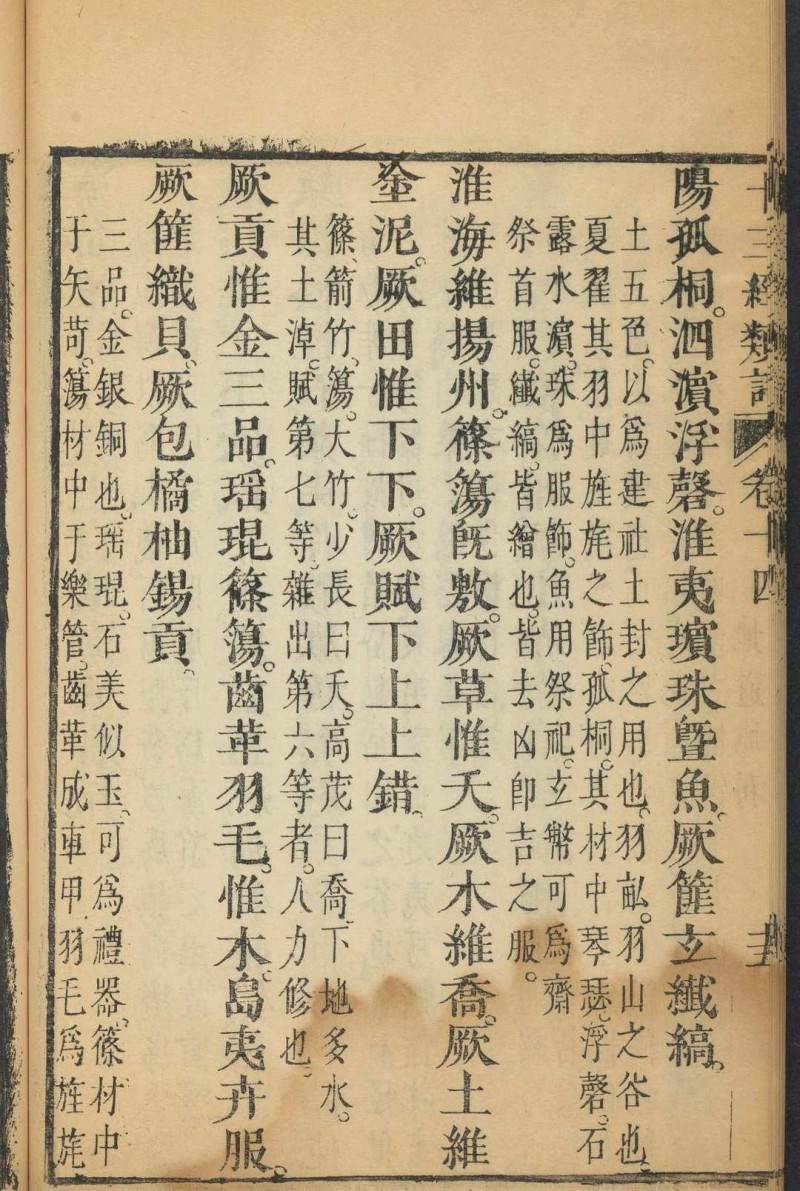 十三經類記 卷十四
陽孤桐。泗濵浮磬。淮夷蠙珠曁魚。厥篚玄纖縞。
土五色。以爲建社土封之用也。羽畎。羽山之谷也。
夏翟其羽中旌旄之飾。孤桐。其材中琴瑟。浮磬。石
露水濵。珠爲服飾。魚用祭祀。玄幣可爲齋
祭首服。纖縞。皆繒也。皆去凶卽吉之服。
淮海維揚州。篠簜旣敷。厥草惟夭。厥木維喬。厥土維
塗泥。厥田惟下下。厥賦下上上錯。
篠、箭竹。簜。大竹。少長曰夭。高茂曰喬。下地多水。
其土淖。賦第七等。雜出第六等者。人力修也。
厥貢惟金三品。瑶琨篠簜。齒革羽毛。惟木。島夷卉服。
厥篚織貝。厥包橘柚錫貢。
三品。金銀銅也。瑶琨。石美似玉。可爲禮器。篠材中
于矢笴。簜材中于樂管。齒革成車甲。羽毛爲旌旄